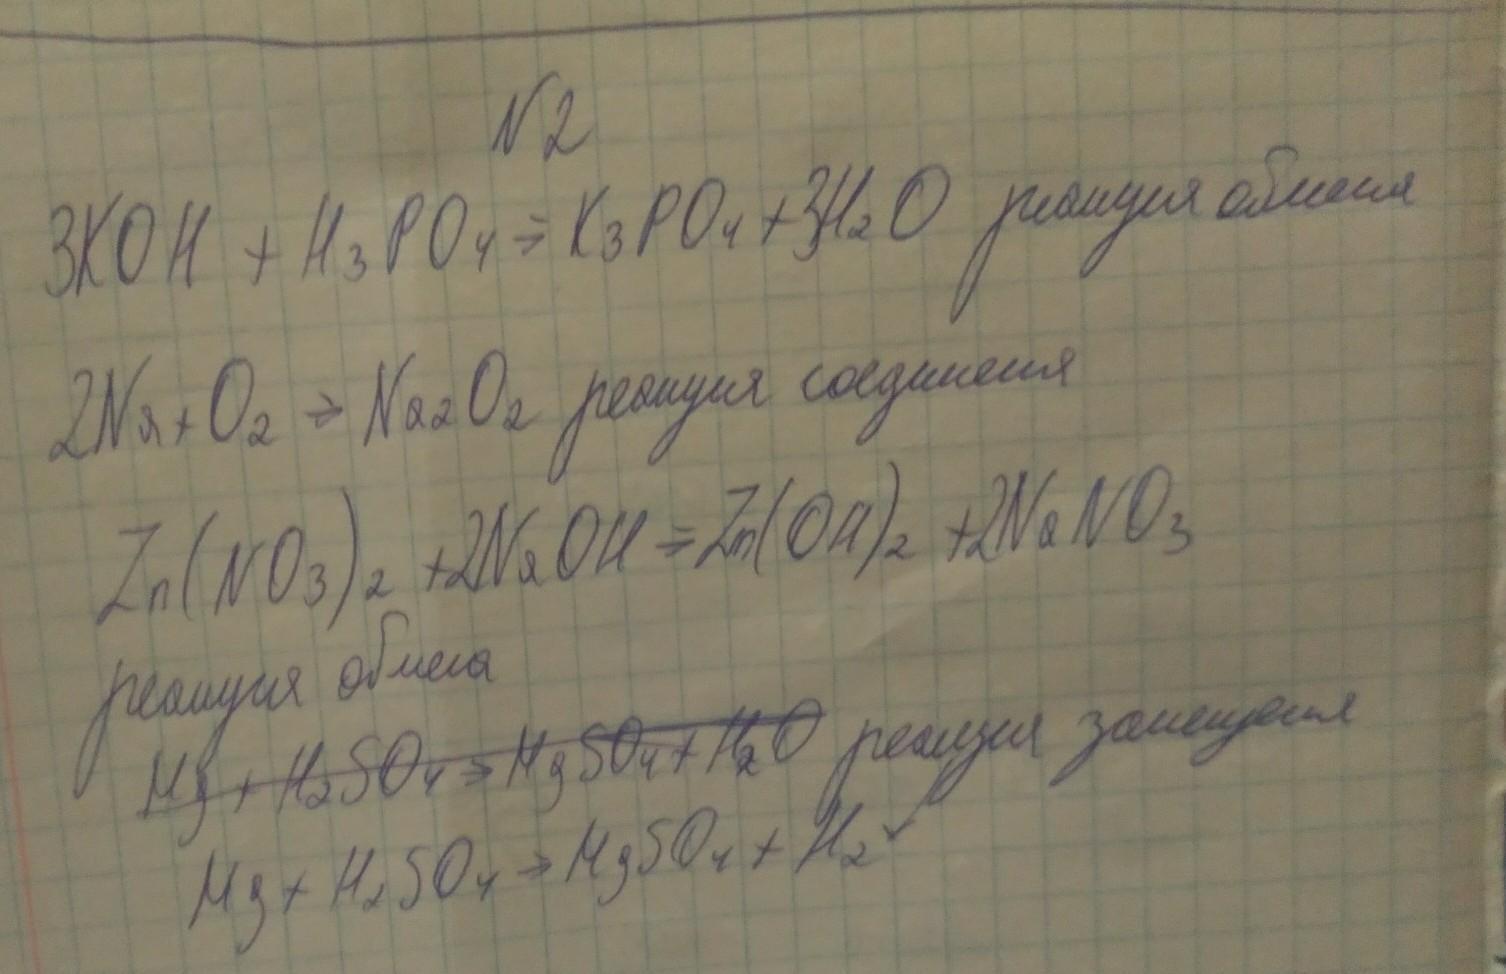 N2
3KOH + H₃PO₄ ⇒ K₃PO₄ + 3H₂O реакция обмена
2Na + O₂ → Na₂O₂ реакция соединения
Zn(NO₃)₂ + 2NaOH ⇒ Zn(OH)₂ + 2NaNO₃
реакция обмена
Mg + H₂SO₄ ⇒ MgSO₄ + H₂O реакция замещения
Mg + H₂SO₄ → MgSO₄ + H₂